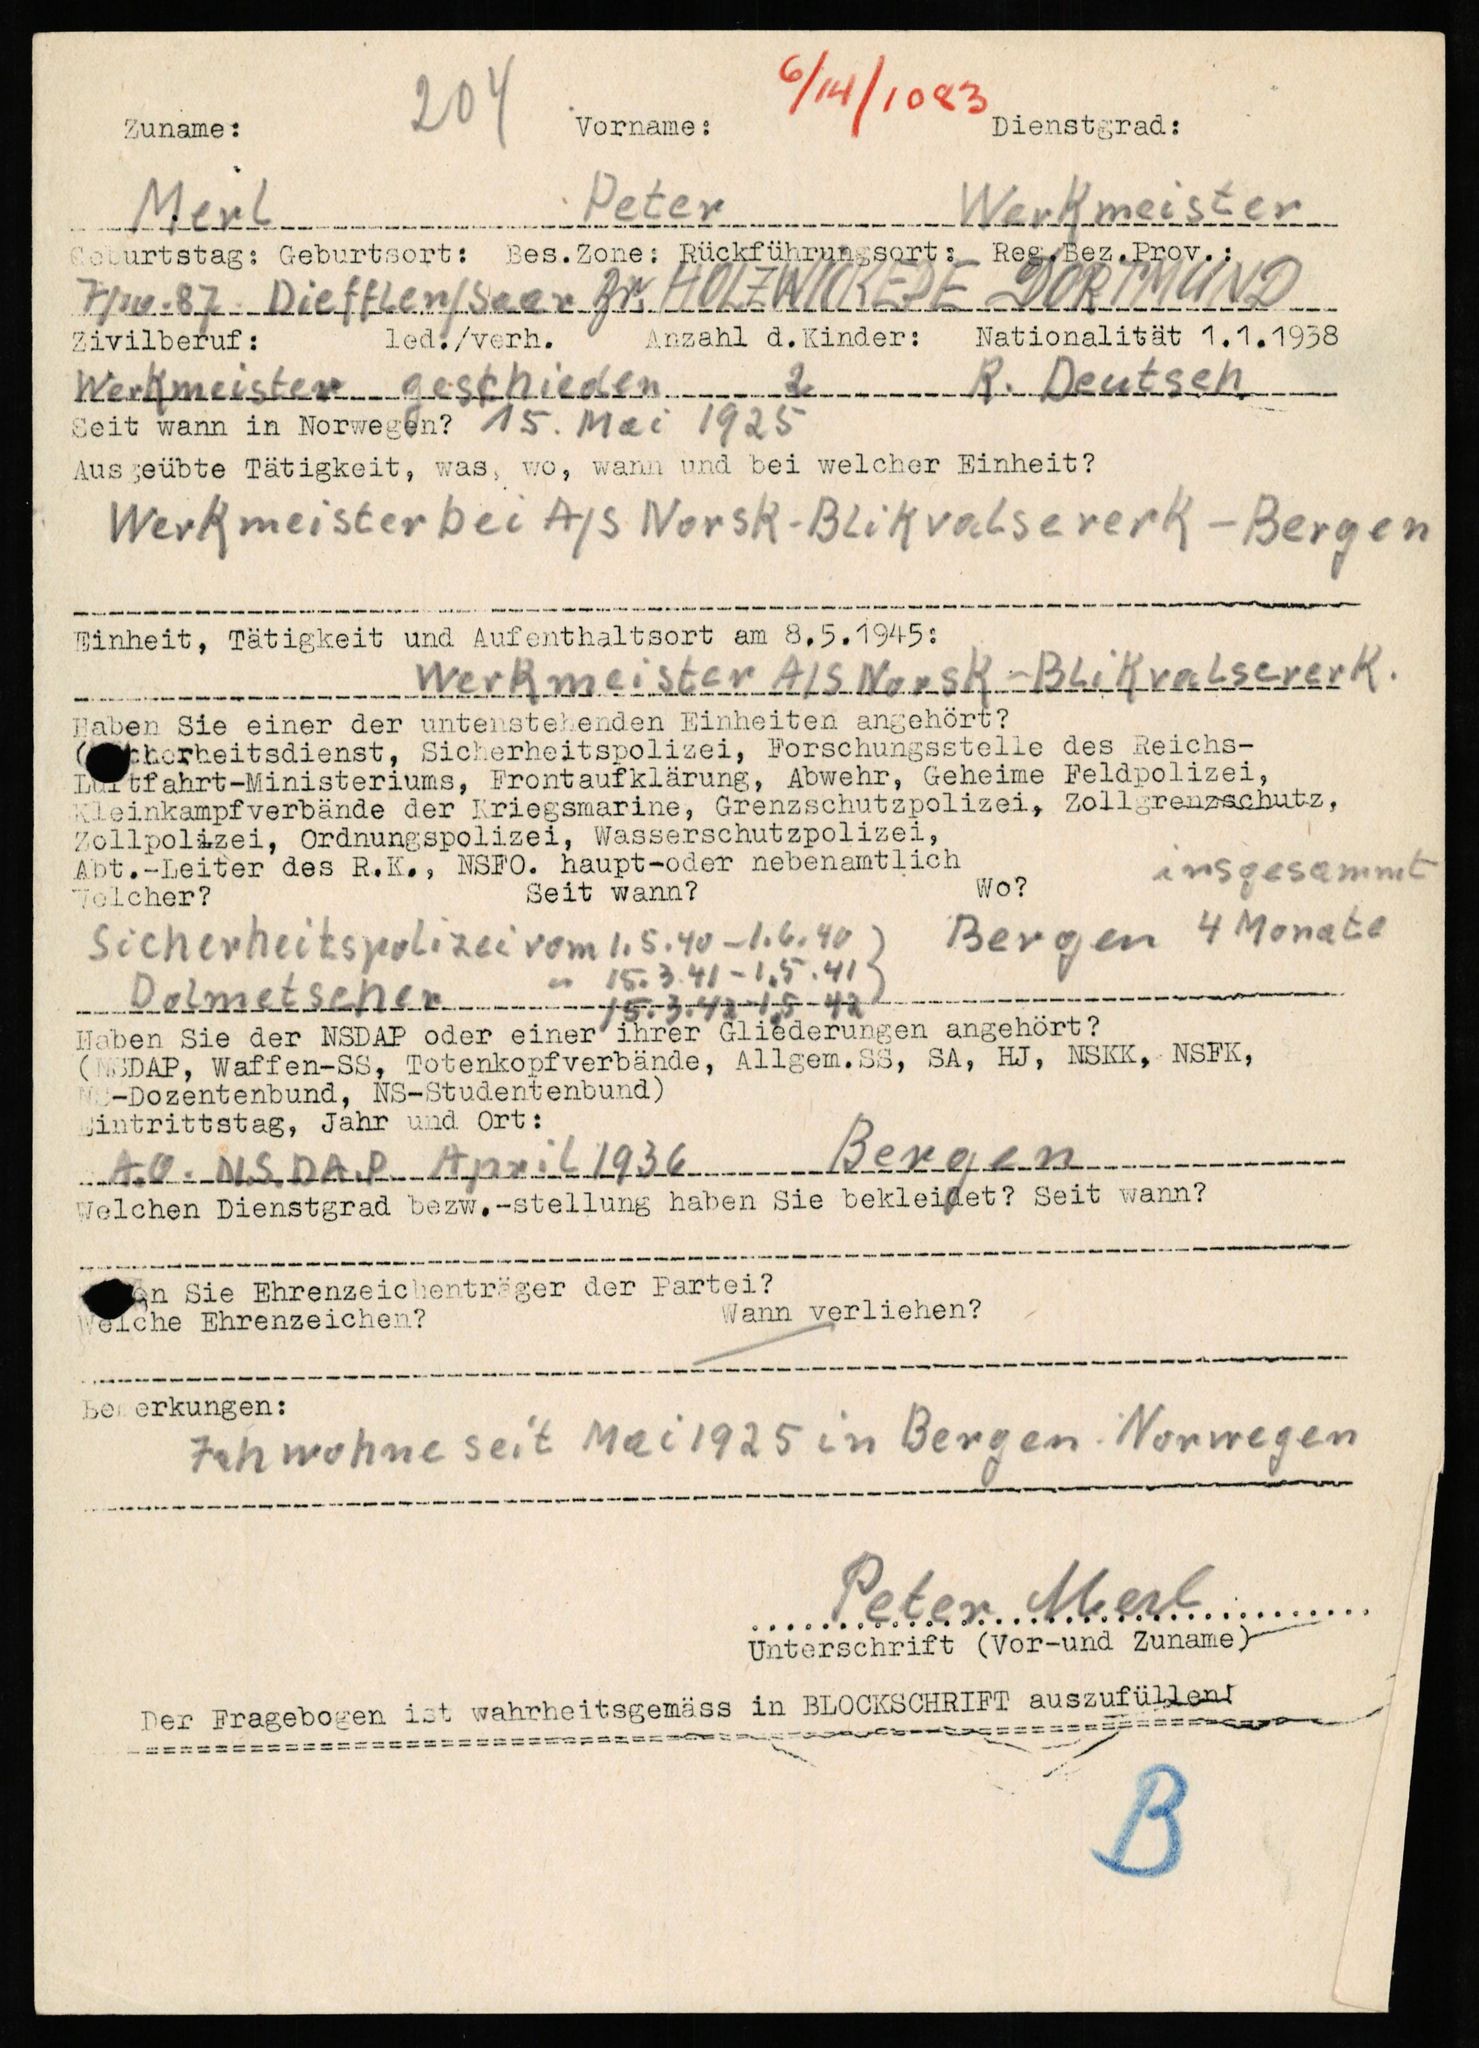 204
6/14/1083
Zuname: Vorname: Dienstgrad:
Merl Peter Werkmeister
Geburtstag: Geburtsort: Bes.Zone: Rückführungsort: Reg.Bez.Prov.:
Diefflen/Saar Br. HOLZWICKEDE DORTMUND
Zivilberuf: led./verh. Anzahl d.Kinder: Nationalität 1.1.1938
Werkmeister geschieden 2 R. Deutsch
Seit wann in Norwegen? 15. Mai 1925
Ausgeübte Tätigkeit, was, wo, wann und bei welcher Einheit?
Werkmeister bei A/S Norsk-Blikvalsererk - Bergen
Einheit, Tätigkeit und Aufenthaltsort am 8.5.1945:
Werkmeister A/S Norsk-Blikvalsererk.
Haben Sie einer der untenstehenden Einheiten angehört?
(Sicherheitsdienst, Sicherheitspolizei, Forschungsstelle des Reichs-
Luftfahrt-Ministeriums, Frontaufklärung, Abwehr, Geheime Feldpolizei,
Kleinkampfverbände der Kriegsmarine, Grenzschutzpolizei, Zollgrenzschutz,
Zollpolizei, Ordnungspolizei, Wasserschutzpolizei,
Abt.-Leiter des R.K., NSFO. haupt-oder nebenamtlich
insgesammt
Welcher? Seit wann? Wo?
Sicherheitspolizei vom 1.5.40 - 1.6.40 } Bergen 4 Monate
" 15.3.41 - 1.5.41
Dolmetscher 15.3.42 - 1.5-42
Haben Sie der NSDAP oder einer ihrer Gliederungen angehört?
(NSDAP, Waffen-SS, Totenkopfverbände, Allgem.SS, SA, HJ, NSKK, NSFK,
NS-Dozentenbund, NS-Studentenbund)
Eintrittstag, Jahr und Ort:
A.O. N.S.D.A.P. April 1936 Bergen
Welchen Dienstgrad bezw.-stellung haben Sie bekleidet? Seit wann?
Sie Ehrenzeichenträger der Partei?
Welche Ehrenzeichen? Wann verliehen?
Bemerkungen:
Ich wohne seit Mai 1925 in Bergen. Norwegen
Peter Merl
Unterschrift (Vor-und Zuname)
Der Fragebogen ist wahrheitsgemäss in BLOCKSCHRIFT auszufüllen!
B